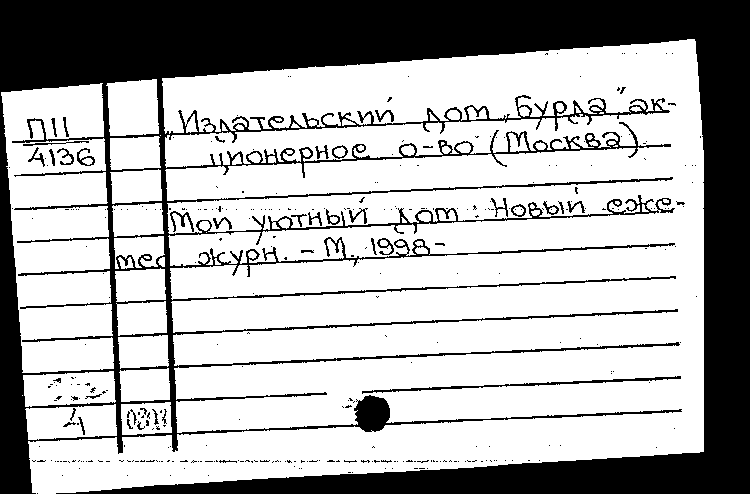 П11
4136
„Издательский дом „Бурда" ак-
ционерное о-во (Москва)
Мой уютный дом : Новый еже-
мес журн. - М., 1998-
4